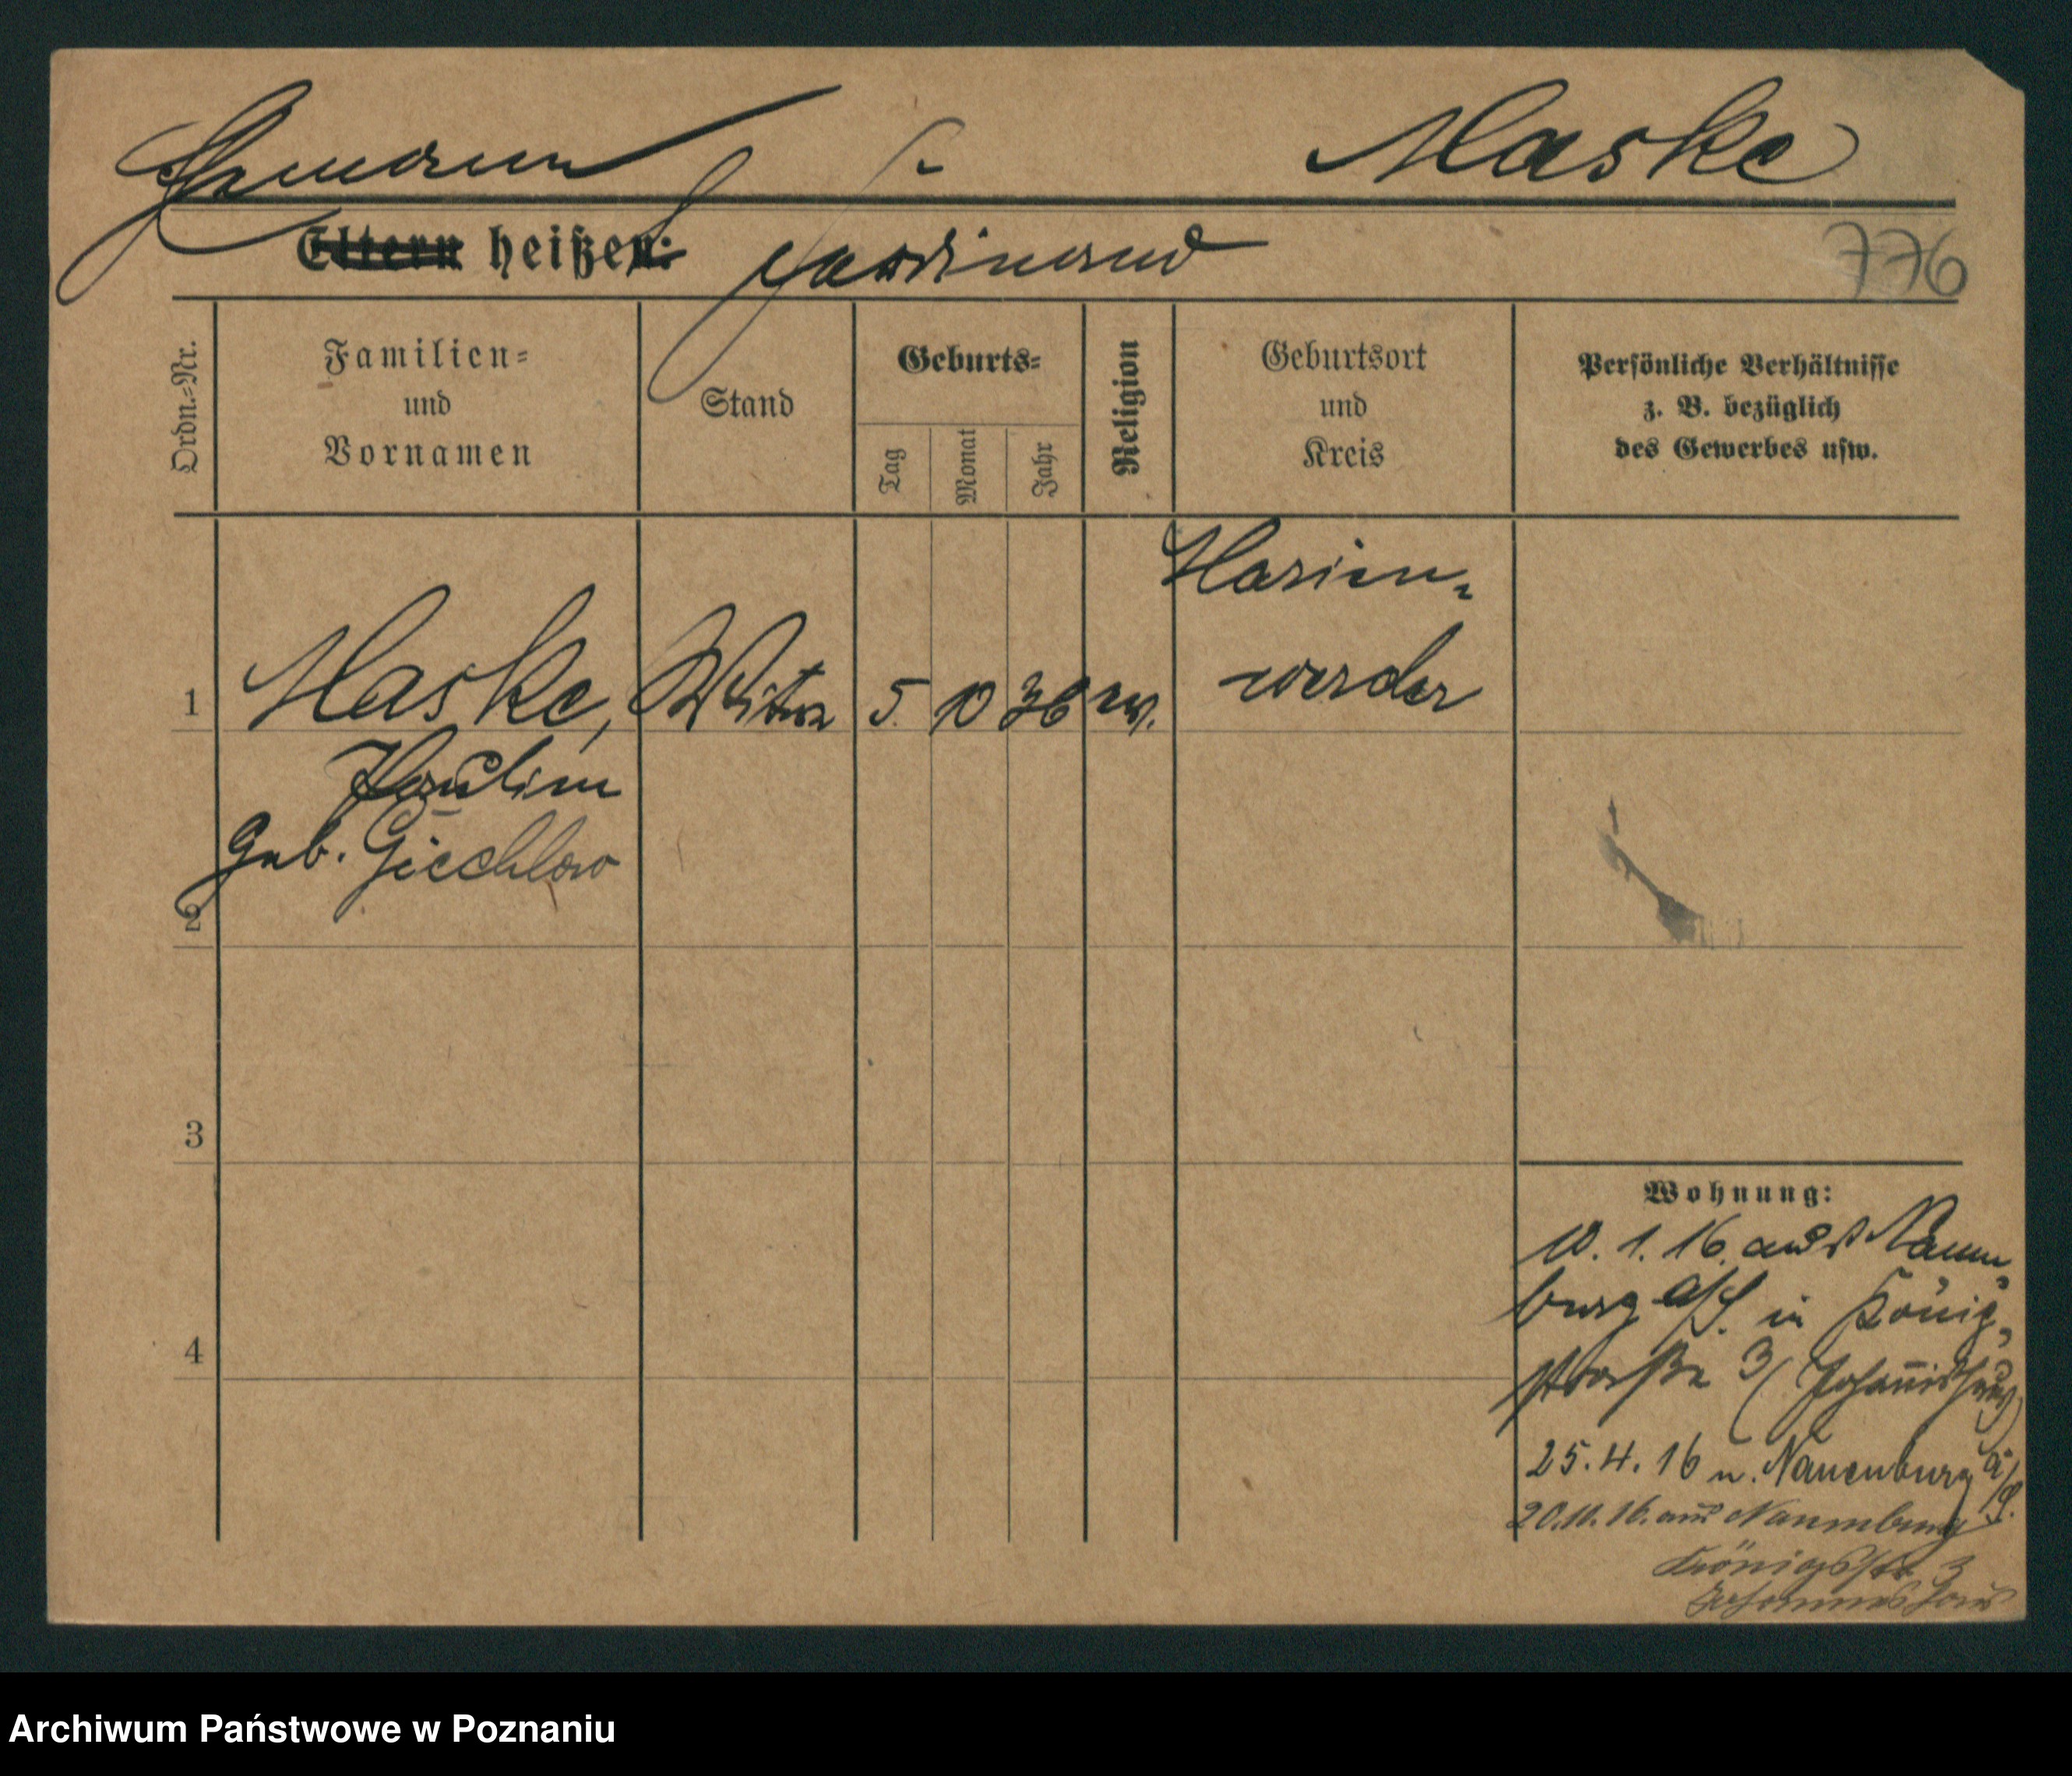 Ehemann Maske
Eltern heißen: Ferdinand
776
Ordn.=Nr.
Familien=
und
Vornamen
Stand
Geburts=
Tag
Monat
Jahr
Religion
Geburtsort
und
Kreis
Persönliche Verhältnisse
z. B. bezüglich
des Gewerbes usw.
1
Maske, Witwe 5. 10 36 ev. Marien-
werder
Pauline
geb. Giechlow
2
3
4
Wohnung:
10. 1. 16. aus Naum-
burg a/S. in König-
straße 3 (Johannishaus)
25. 4. 16 n. Naumburg a/S.
20.11.16. aus Naumburg
Königsstr 3
Johanneshaus
Archiwum Państwowe w Poznaniu